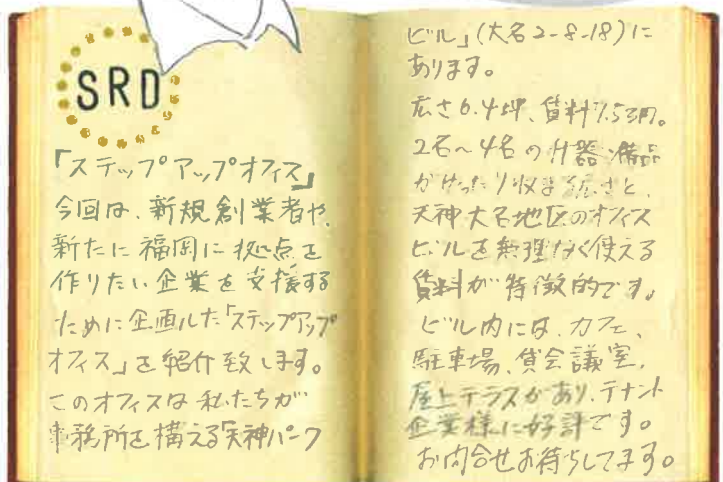 SRD
「ステップアップオフィス」
今回は、新規創業者や、
新たに福岡に拠点を
作りたい企業を支援する
ために企画した「ステップアップ
オフィス」を紹介致します。
このオフィスは私たちが
事務所を構える「天神パーク
ビル」(大名2-8-18)に
あります。
広さ6.4坪、賃料7.5万円。
2名〜4名の什器・備品
がぴったり収まる広さと、
天神大名地区のオフィス
ビルを無理なく使える
賃料が特徴的です。
ビル内には、カフェ、
駐車場、貸会議室、
屋上テラスがあり、テナント
企業様に好評です。
お問合せお待ちしてます。